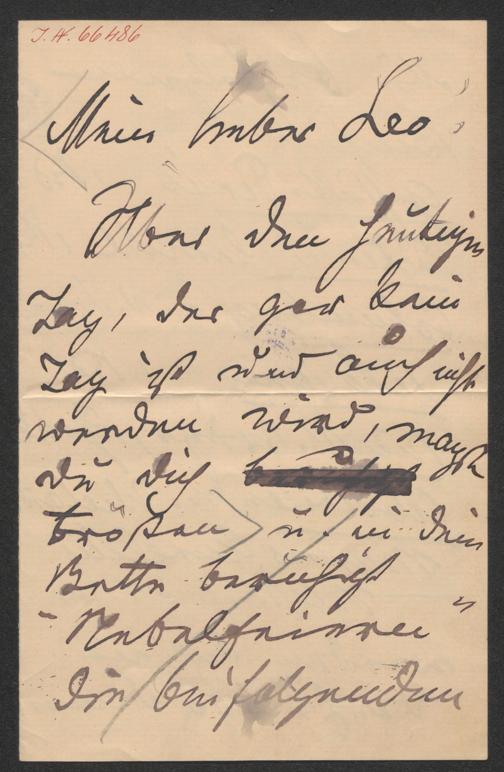 I.N. 66486
Mein lieber Leo!
Über den heutigen
Tag, der gar kein
Tag ist und auch nicht
werden wird, magst
du dich
trösten u. in dein
Bette beruhigt
"Nebelfeieren"
die beifolgenden